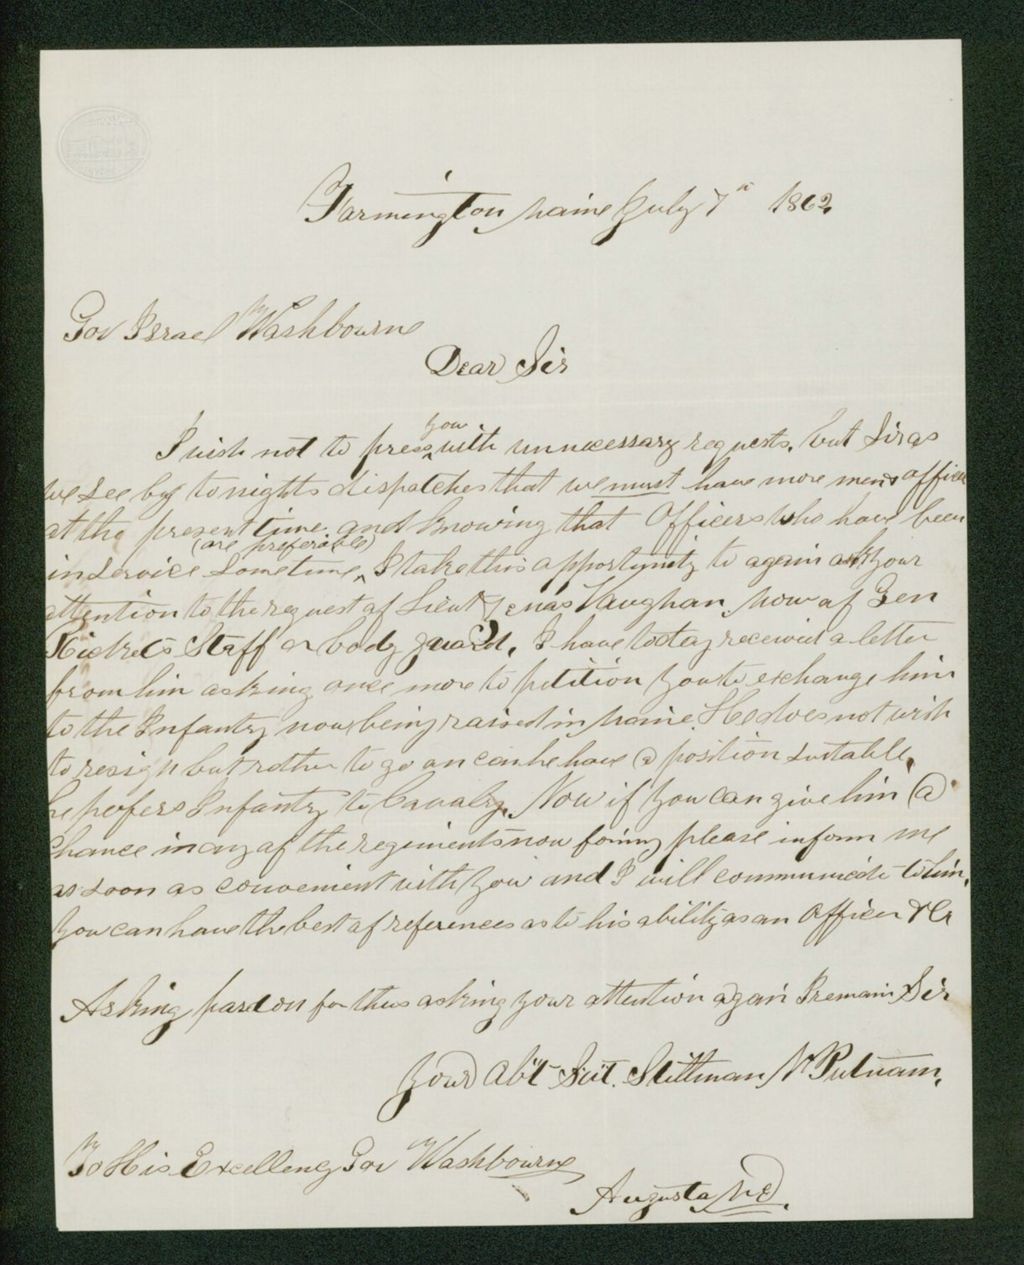 Farmington Maine July 7th 1862
Gov Israel Washbourne
Dear Sir
you
I wish not to press with unnecessary requests, but Sir as
we see by tonights dispatches that we must have more men & officers
at the present time and knowing that Officers who have been
(are preferable)
in service sometime, I take this opportunity to again ask your
attention to the request of Lieut Zenas Vaughan, now of Gen
Staff or body guard. I have today received a letter
from him asking once more to petition you to exchange him
to the Infantry now being raised in Maine He does not wish
to resign but rather to go on can he have a position suitable.
he prefers Infantry to Cavalry. Now if you can give him a
chance in any of the regiments now foring please inform me
as soon as convenient with you and I will communicate to him.
You can have the best of references as to his ability as an Officer &c
Asking pardon for thus asking your attention again I remain Sir
Your Obt Svt. Stillman N Putnam.
To His Excellency Gov Washbourne
Augusta Me.